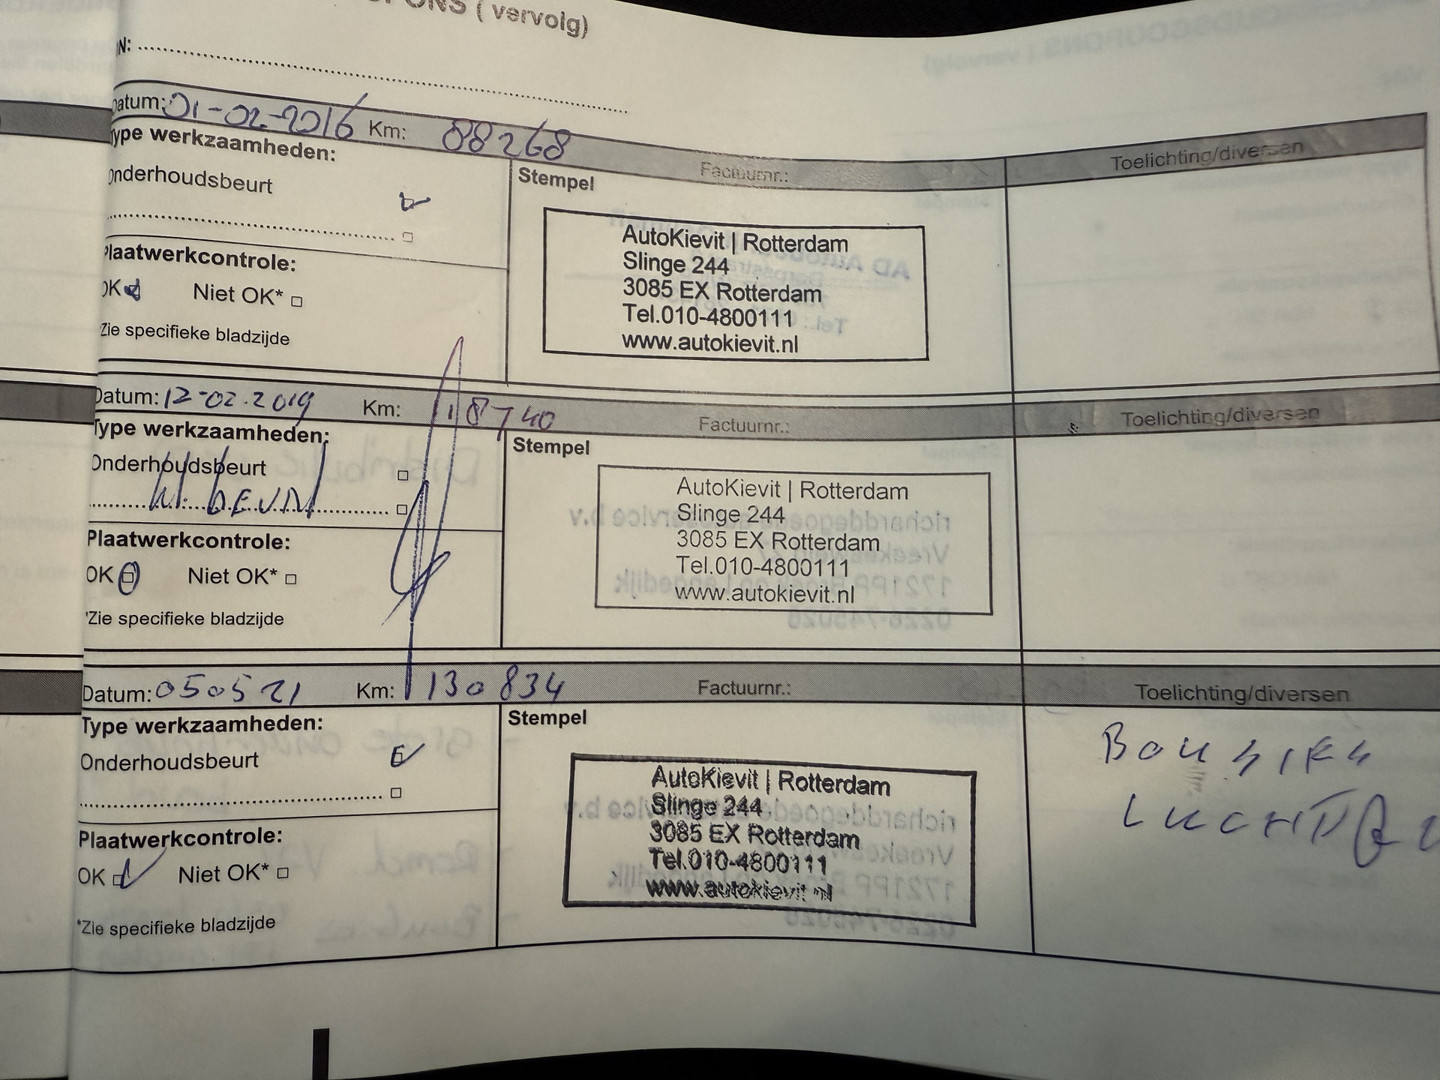 ONS ( vervolg)
N:
Datum: 01-02-2016 Km: 88268 Factuurnr.: Toelichting/diversen
Type werkzaamheden:
Onderhoudsbeurt
Stempel
AutoKievit | Rotterdam
Slinge 244
3085 EX Rotterdam
Tel.010-4800111
www.autokievit.nl
Plaatwerkcontrole:
OK Niet OK*
Zie specifieke bladzijde
Datum: 12-02-2019 Km: 118740 Factuurnr.: Toelichting/diversen
Type werkzaamheden:
Onderhoudsbeurt
Stempel
AutoKievit | Rotterdam
Slinge 244
3085 EX Rotterdam
Tel.010-4800111
www.autokievit.nl
Plaatwerkcontrole:
OK Niet OK*
*Zie specifieke bladzijde
Datum: 050521 Km: 130834 Factuurnr.: Toelichting/diversen
Type werkzaamheden:
Onderhoudsbeurt
Stempel
AutoKievit | Rotterdam
Slinge 244
3085 EX Rotterdam
Tel.010-4800111
www.autokievit.nl
Plaatwerkcontrole:
OK Niet OK*
*Zie specifieke bladzijde